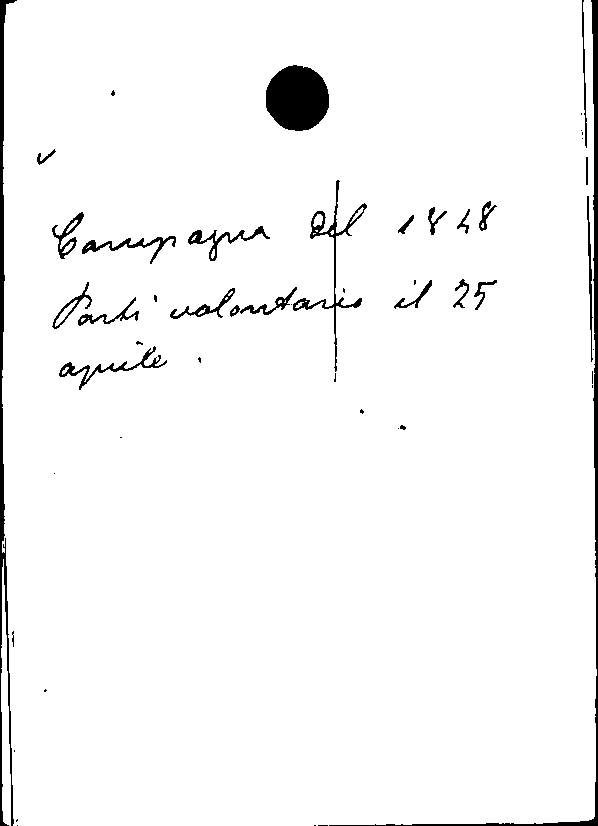 Campagna del 1848
Partì volontario il 25
aprile.